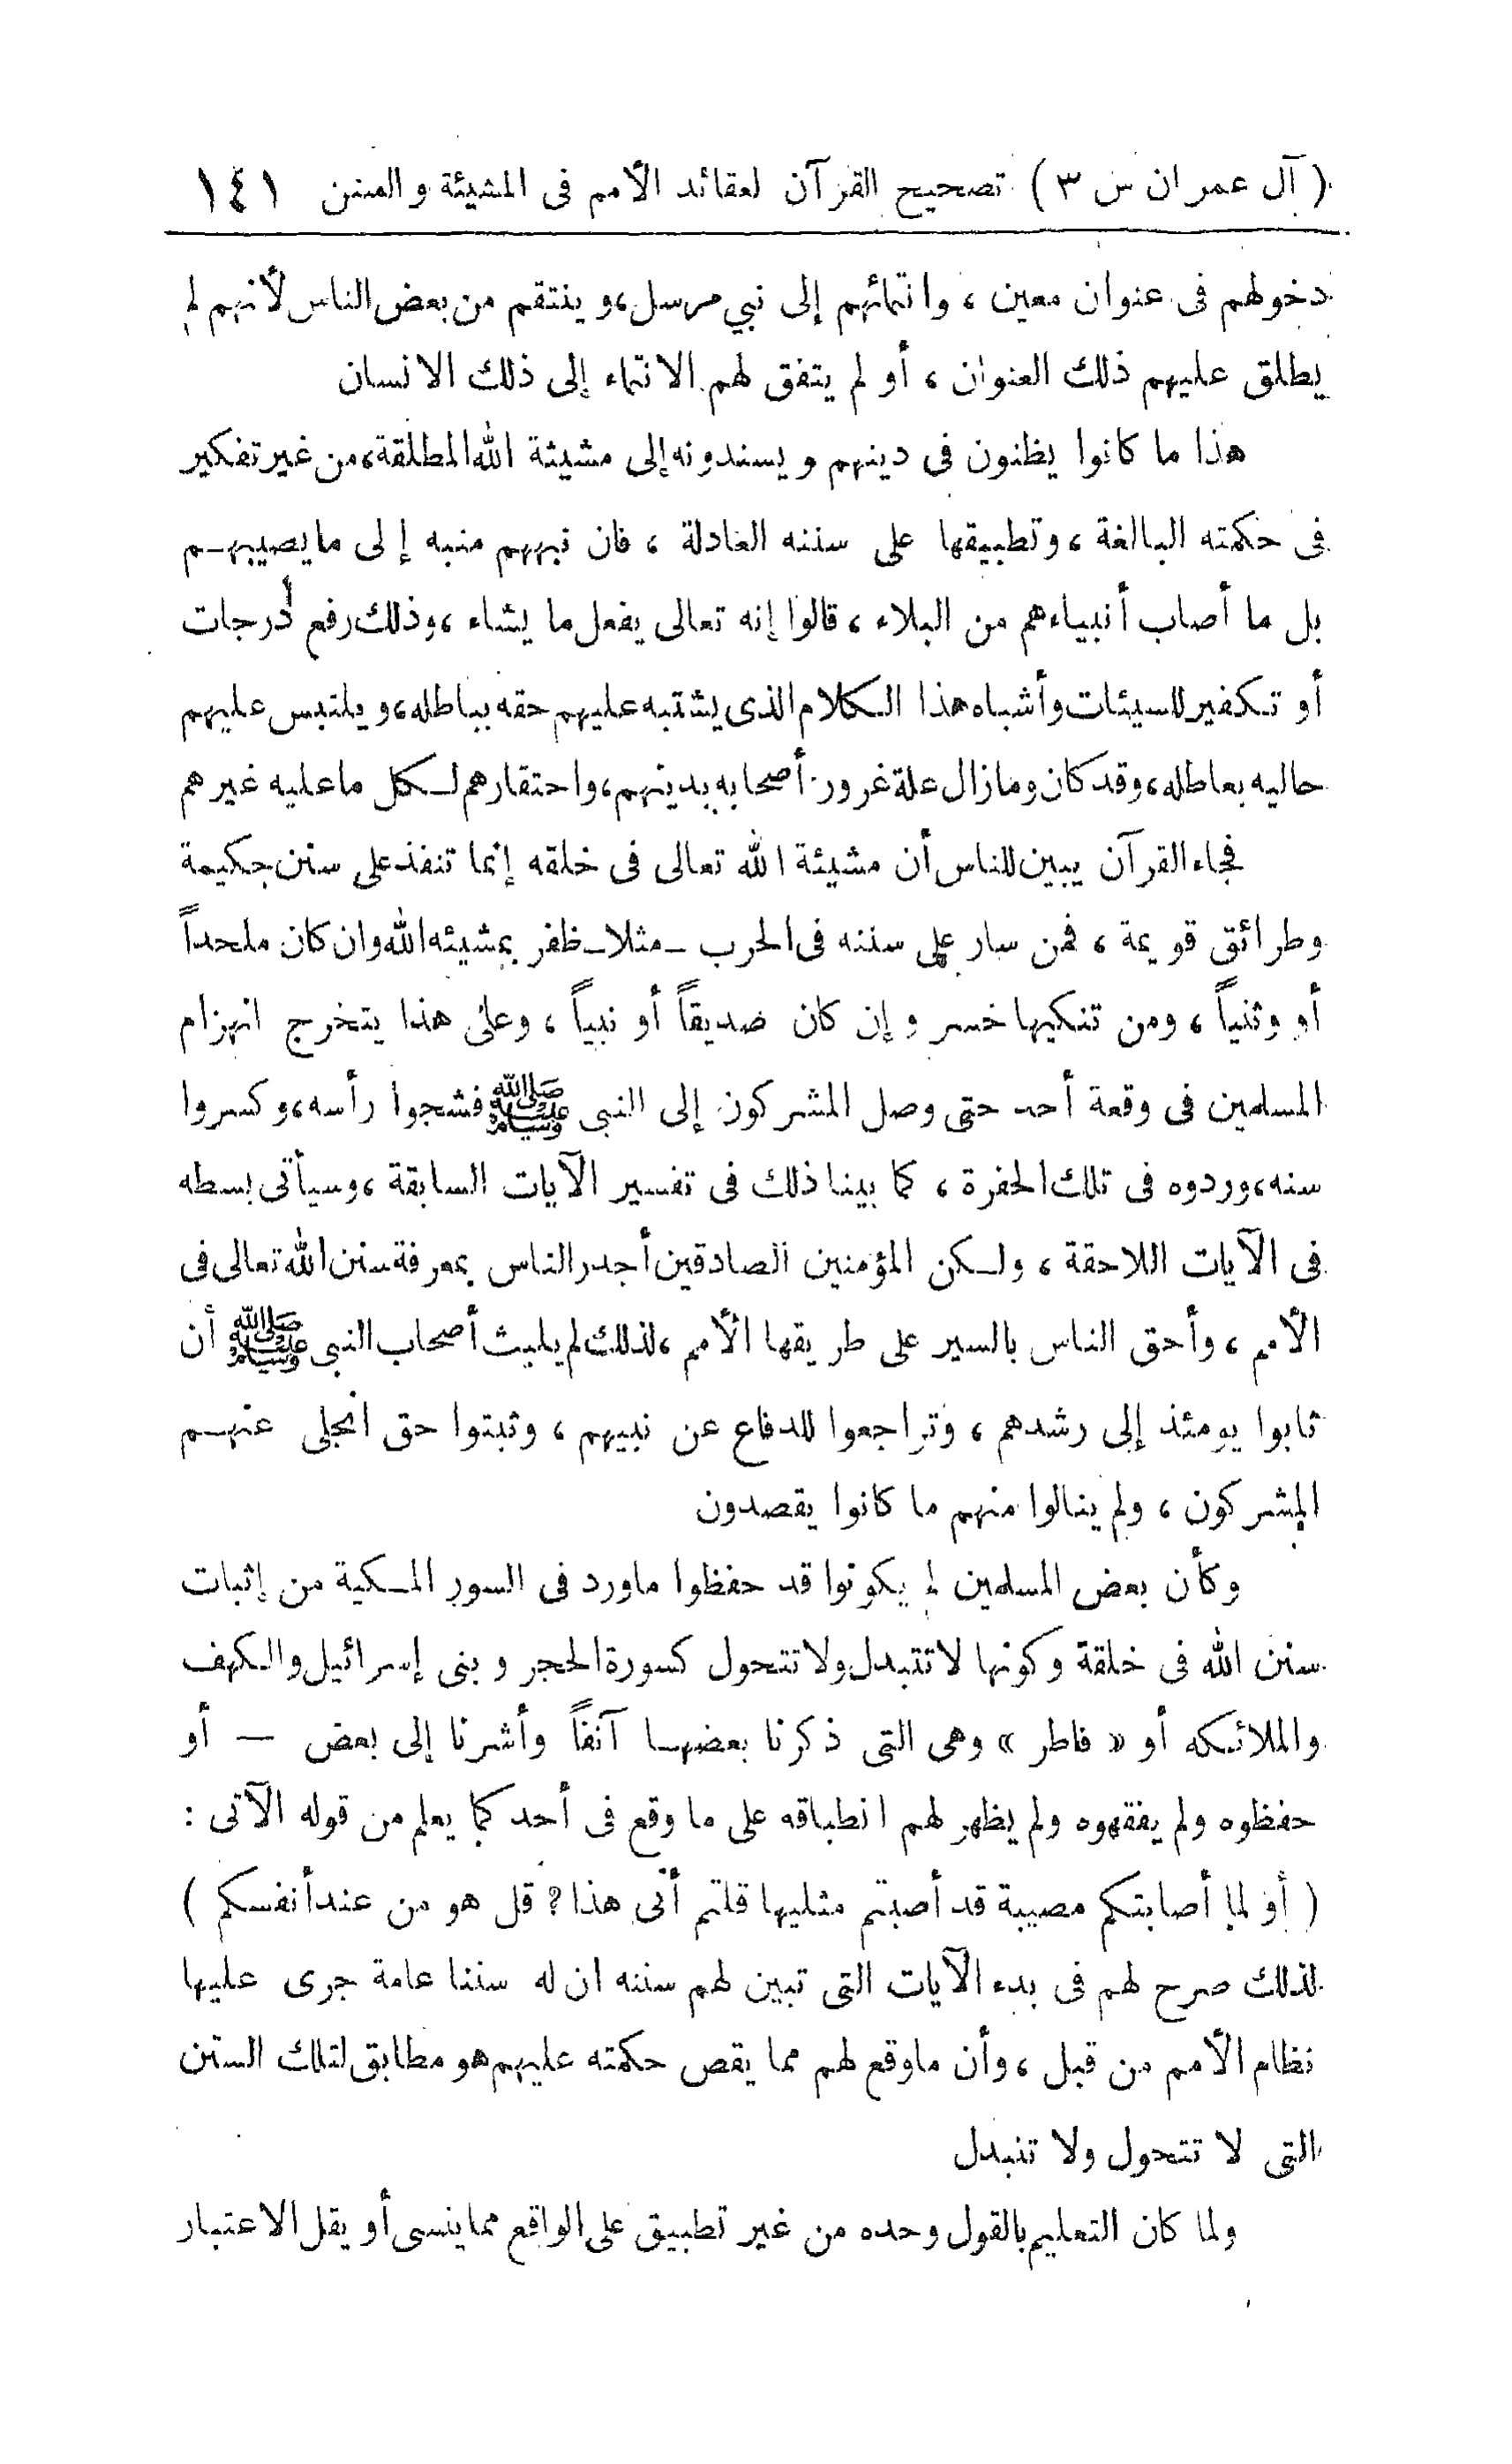 ( آل عمران س ٣ ) تصحيح القرآن لعقائد الأمم فى المشيئة والسنن ١٤١
دخولهم فى عنوان معين ، وانتمائهم إلى نبي مرسل ، وينتقم من بعض الناس لأنهم لم
يطلق عليهم ذلك العنوان ، أو لم يتفق لهم الانتماء إلى ذلك الانسان
هذا ما كانوا يظنون فى دينهم ويسندونه إلى مشيئة الله المطلقة ، من غير تفكير
فى حكمته البالغة ، وتطبيقها على سننه العادلة ، فان نبههم منبه إلى ما يصيبهم
بل ما أصاب أنبياءهم من البلاء ، قالوا إنه تعالى يفعل ما يشاء ، وذلك رفع درجات
أو تكفير للسيئات وأشباه هذا الكلام الذى يشتبه عليهم حقه بباطله ، ويلتبس عليهم
حاليه بعاطله ، وقد كان وما زال علة غرور أصحابه بدينهم ، واحتقارهم لكل ما عليه غيرهم
فجاء القرآن يبين للناس أن مشيئة الله تعالى فى خلقه إنما تنفذ على سنن حكيمة
وطرائق قويمة ، فمن سار على سننه فى الحرب ــ مثلا ــ ظفر بمشيئه الله وان كان ملحداً
أو وثنياً ، ومن تنكبها خسر وإن كان صديقاً أو نبياً ، وعلى هذا يتخرج انهزام
المسلمين فى وقعة أحد حتى وصل المشركون إلى النبى ﷺ فشجوا رأسه ، وكسروا
سنه ، وردوه فى تلك الحفرة ، كما بينا ذلك فى تفسير الآيات السابقة ، وسيأتى بسطه
فى الآيات اللاحقة ، ولكن المؤمنين الصادقين أجدر الناس بمعرفة سنن الله تعالى فى
الأمم ، وأحق الناس بالسير على طريقها الأمم ، لذلك لم يلبث أصحاب النبى ﷺ أن
ثابوا يومئذ إلى رشدهم ، وتراجعوا للدفاع عن نبيهم ، وثبتوا حتى انجلى عنهم
المشركون ، ولم ينالوا منهم ما كانوا يقصدون
وكأن بعض المسلمين لم يكونوا قد حفظوا ما ورد فى السور المكية من إثبات
سنن الله فى خلقة وكونها لا تتبدل ولا تتحول كسورة الحجر وبنى إسرائيل والكهف
والملائكه أو « فاطر » وهى التى ذكرنا بعضها آنفاً وأشرنا إلى بعض — أو
حفظوه ولم يفقهوه ولم يظهر لهم انطباقه على ما وقع فى أحد كما يعلم من قوله الآتى :
( أو لما أصابتكم مصيبة قد أصبتم مثليها قلتم أنى هذا ؟ قل هو من عند أنفسكم )
لذلك صرح لهم فى بدء الآيات التى تبين لهم سننه ان له سننا عامة جرى عليها
نظام الأمم من قبل ، وأن ما وقع لهم مما يقص حكمته عليهم هو مطابق لتلك السنن
التى لا تتحول ولا تتبدل
ولما كان التعليم بالقول وحده من غير تطبيق على الواقع مما ينسى أو يقل الاعتبار